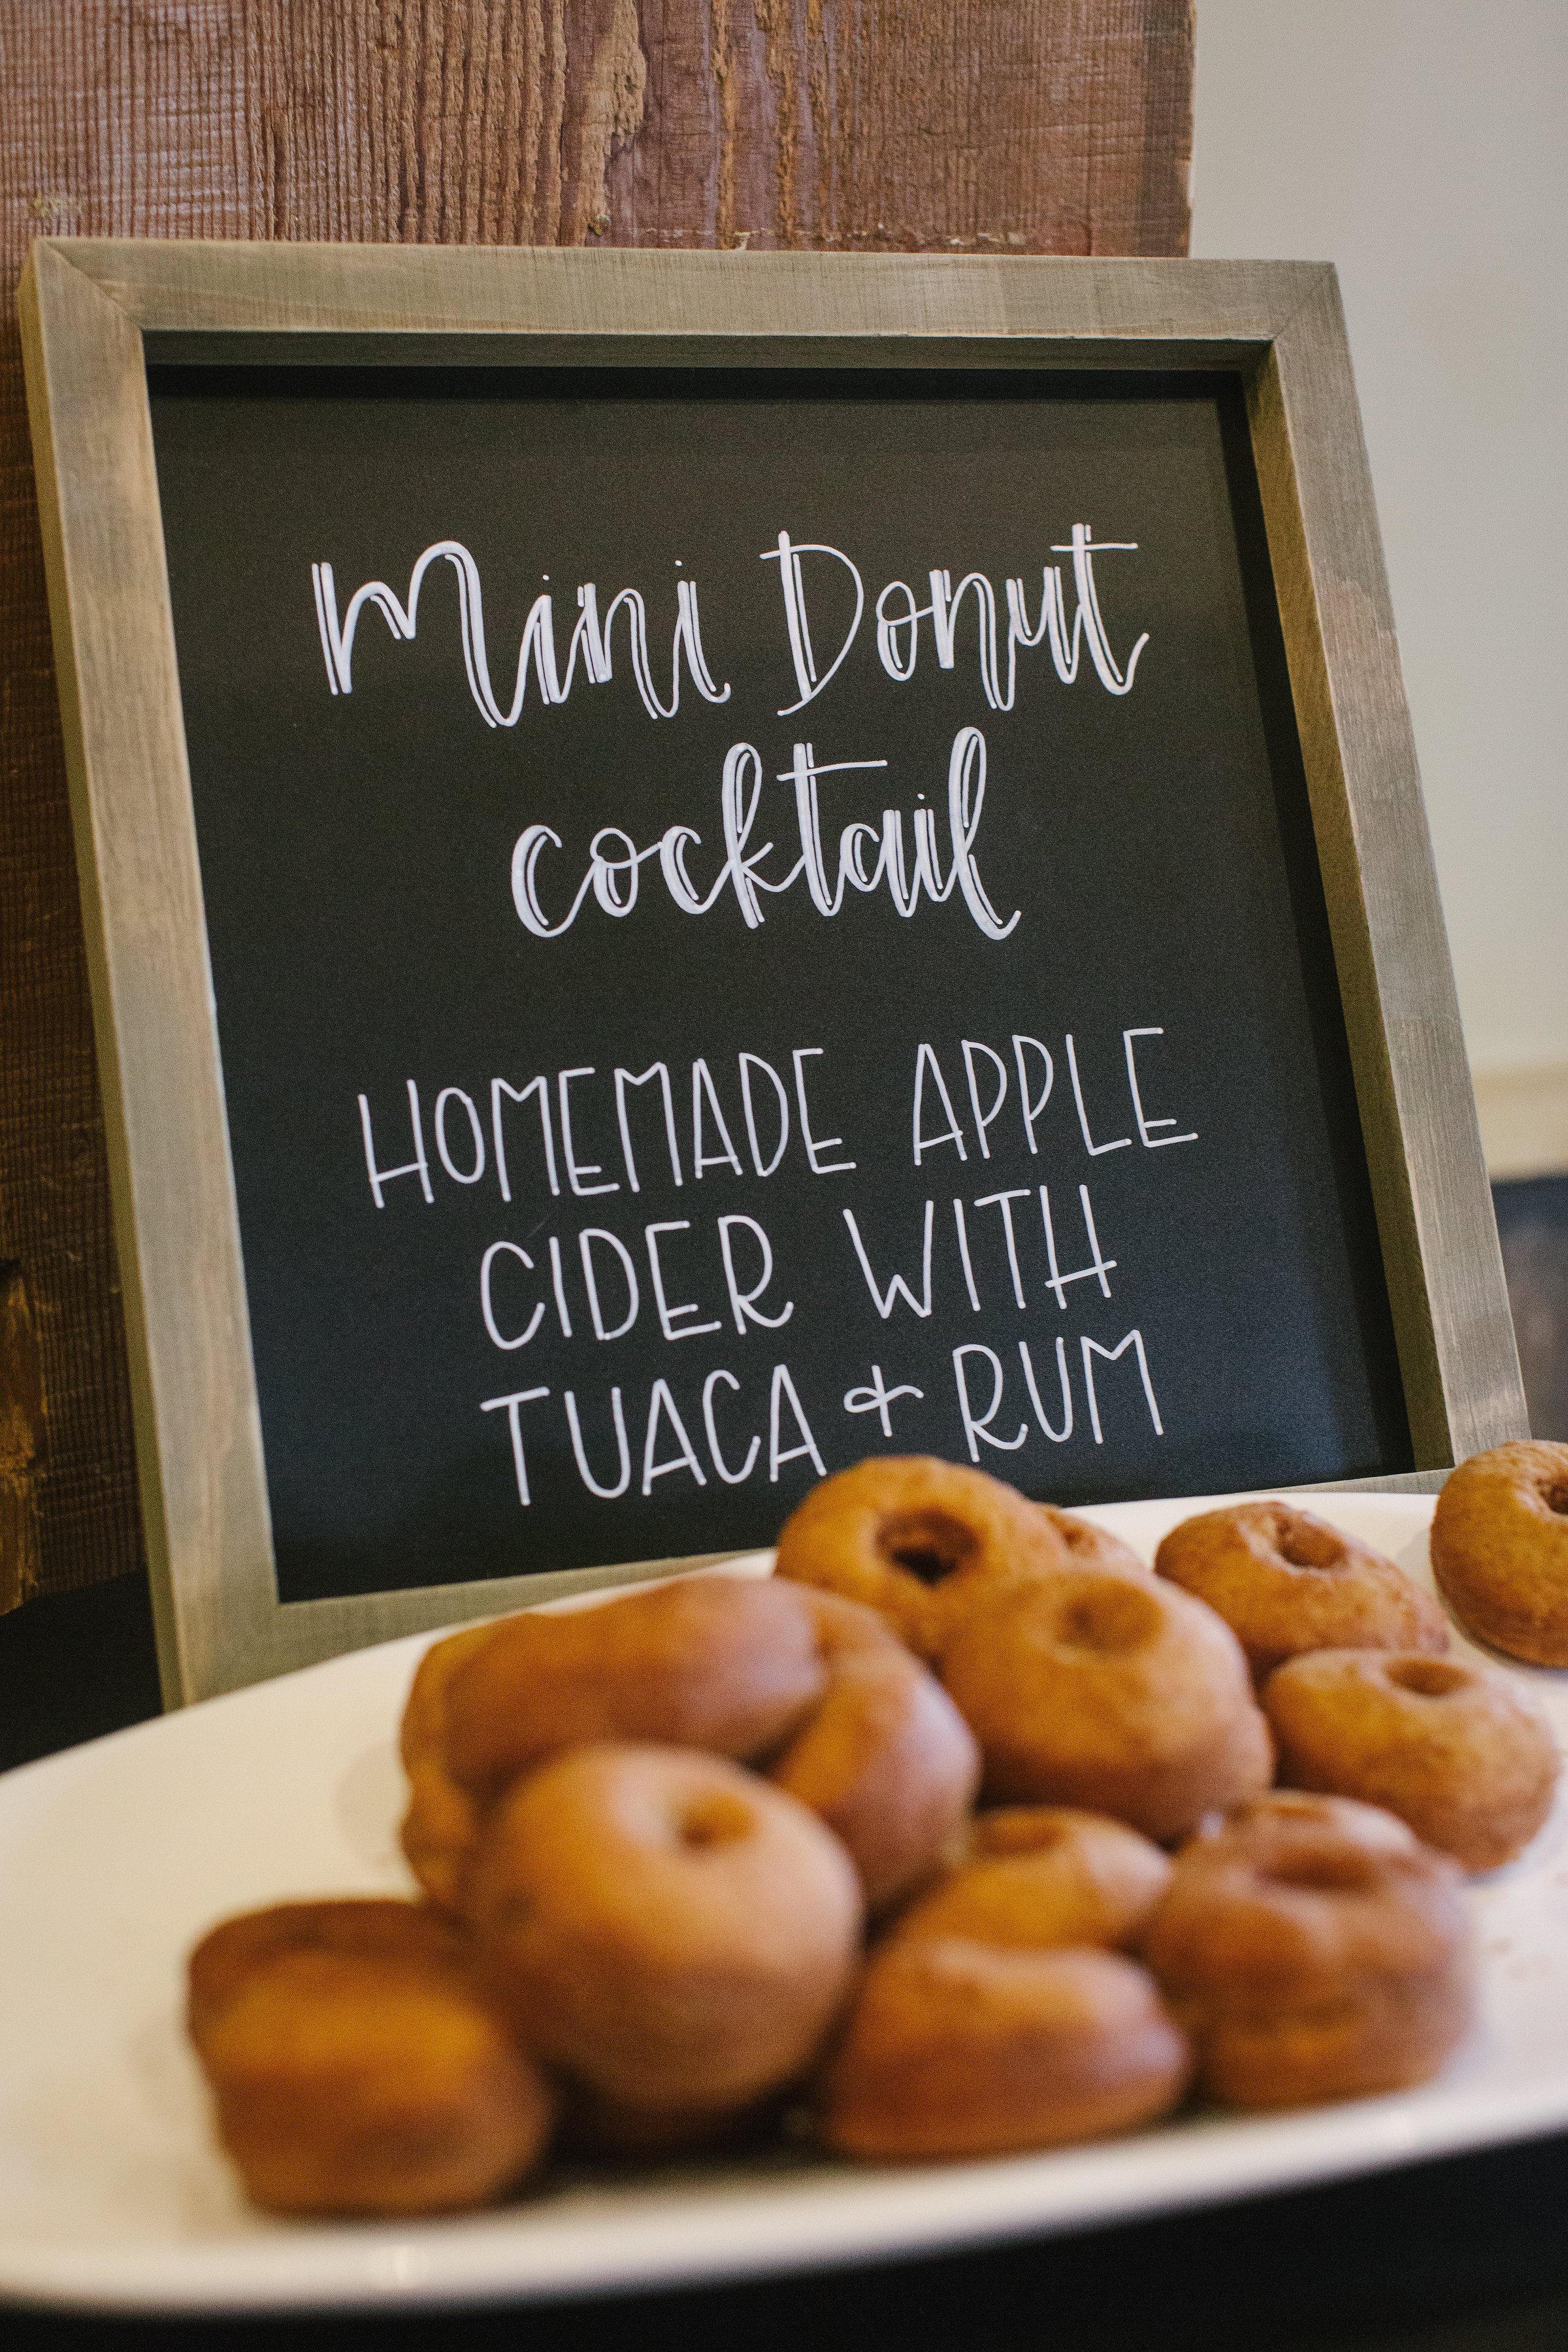 Mini Donut
cocktail
HOMEMADE APPLE
CIDER WITH
TUACA & RUM